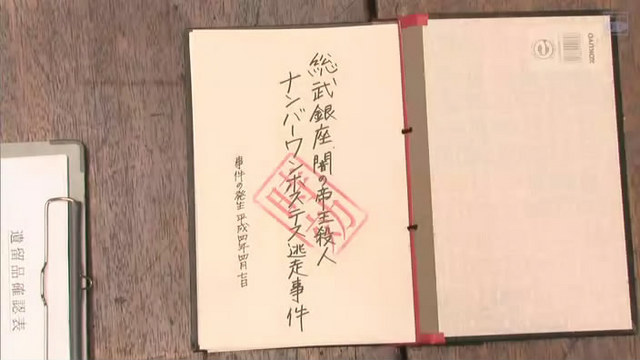 総武銀座 闇の帝王殺人
ナンバーワンホステス逃走事件
事件の発生 平成四年四月七日
時効
遺留品確認表
KOKUYO